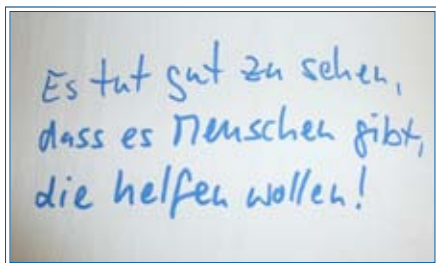 Es tut gut zu sehen,
dass es Menschen gibt,
die helfen wollen!